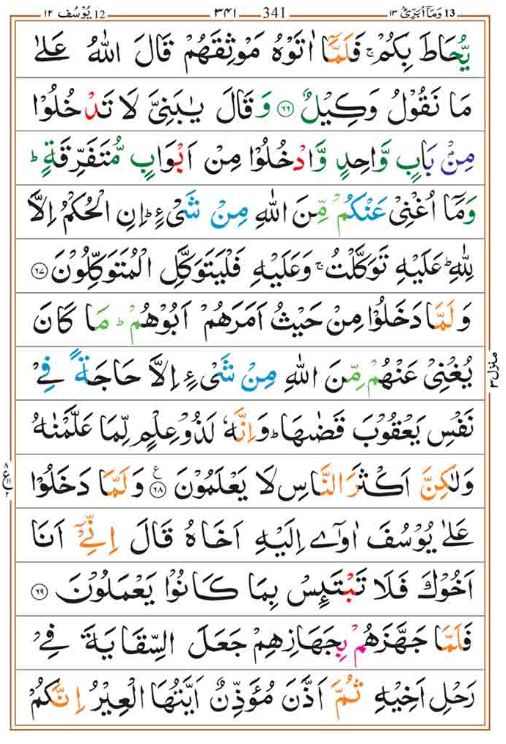 13 وَمَآ اُبَرِّئُ ١٣ 341 ٣٤١ 12 يُوْسُف ١٢
يُّحَاطَ بِكُمْ ۚ فَلَمَّاۤ اٰتَوْهُ مَوْثِقَهُمْ قَالَ اللّٰهُ عَلٰى
مَا نَقُوْلُ وَكِيْلٌ ﴿۶۶﴾ وَقَالَ يٰبَنِىَّ لَا تَدْخُلُوْا
مِنْۢ بَابٍ وَّاحِدٍ وَّادْخُلُوْا مِنْ اَبْوَابٍ مُّتَفَرِّقَةٍ ؕ
وَمَاۤ اُغْنِىْ عَنْكُمْ مِّنَ اللّٰهِ مِنْ شَىْءٍ ؕ اِنِ الْحُكْمُ اِلَّا
لِلّٰهِ ؕ عَلَيْهِ تَوَكَّلْتُ ۚ وَعَلَيْهِ فَلْيَتَوَكَّلِ الْمُتَوَكِّلُوْنَ ﴿۶۷﴾
وَلَمَّا دَخَلُوْا مِنْ حَيْثُ اَمَرَهُمْ اَبُوْهُمْ ؕ مَا كَانَ
يُغْنِىْ عَنْهُمْ مِّنَ اللّٰهِ مِنْ شَىْءٍ اِلَّا حَاجَةً فِىْ
نَفْسِ يَعْقُوْبَ قَضٰٮهَا ؕ وَاِنَّهٗ لَذُوْ عِلْمٍ لِّمَا عَلَّمْنٰهُ
وَلٰكِنَّ اَكْثَرَ النَّاسِ لَا يَعْلَمُوْنَ ﴿۶۸﴾ ع وَلَمَّا دَخَلُوْا
عَلٰى يُوْسُفَ اٰوٰٓى اِلَيْهِ اَخَاهُ قَالَ اِنِّىْۤ اَنَا
اَخُوْكَ فَلَا تَبْتَئِسْ بِمَا كَانُوْا يَعْمَلُوْنَ ﴿۶۹﴾
فَلَمَّا جَهَّزَهُمْ بِجَهَازِهِمْ جَعَلَ السِّقَايَةَ فِىْ
رَحْلِ اَخِيْهِ ثُمَّ اَذَّنَ مُؤَذِّنٌ اَيَّتُهَا الْعِيْرُ اِنَّكُمْ
منزل ٣